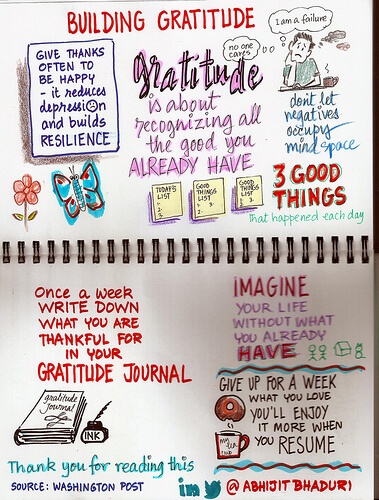 BUILDING GRATITUDE
GIVE THANKS
OFTEN TO
BE HAPPY
- it reduces
depression
and builds
RESILIENCE
gratitude
is about
recognizing all
the good you
ALREADY HAVE
no one
cares
I am a failure
don't let
negatives
occupy
mind space
TODAY'S
LIST
1.
2.
3.
GOOD
THINGS
LIST
1.
2.
3.
GOOD
THINGS
LIST
1.
2.
3.
3 GOOD
THINGS
that happened each day
Once a week
WRITE DOWN
WHAT YOU ARE
THANKFUL FOR
IN YOUR
GRATITUDE JOURNAL
gratitude
Journal
INK
IMAGINE
YOUR LIFE
WITHOUT WHAT
YOU ALREADY
HAVE
GIVE UP FOR A WEEK
WHAT YOU LOVE
YOU'LL ENJOY
IT MORE WHEN
YOU RESUME
my
Thank you for reading this
SOURCE: WASHINGTON POST
in
@ABHIJITBHADURI